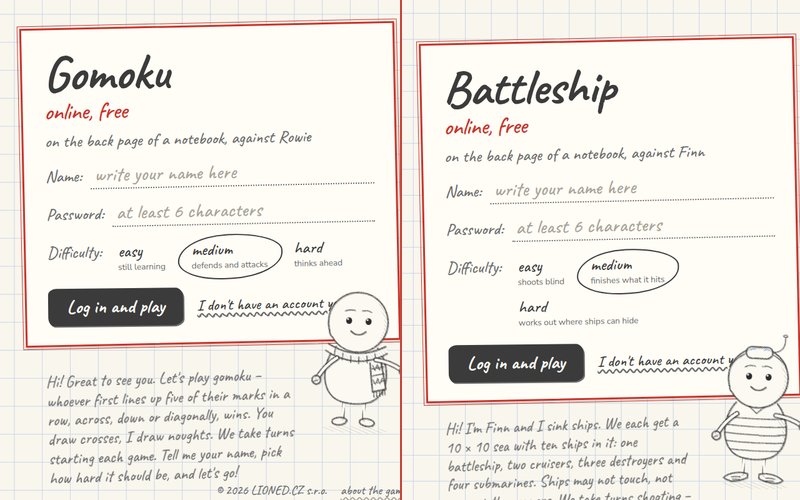 Gomoku
online, free
on the back page of a notebook, against Rowie
Name: write your name here
Password: at least 6 characters
Difficulty: easy medium hard
still learning defends and attacks thinks ahead
Log in and play I don't have an account
Hi! Great to see you. Let's play gomoku –
whoever first lines up five of their marks in a
row, across, down or diagonally, wins. You
draw crosses, I draw noughts. We take turns
starting each game. Tell me your name, pick
how hard it should be, and let's go!
© 2026 LIONED.CZ s.r.o. about the
Battleship
online, free
on the back page of a notebook, against Finn
Name: write your name here
Password: at least 6 characters
Difficulty: easy medium
shoots blind finishes what it hits
hard
works out where ships can hide
Log in and play I don't have an account
Hi! I'm Finn and I sink ships. We each get a
10 × 10 sea with ten ships in it: one
battleship, two cruisers, three destroyers and
four submarines. Ships may not touch, not
We take turns shooting –